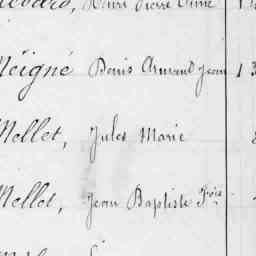 Henri Pierre Aimé 1
Meigné Denis Armand Jean 1 3
Mellet, Jules Marie
Mellet, Jean Baptiste Fçois